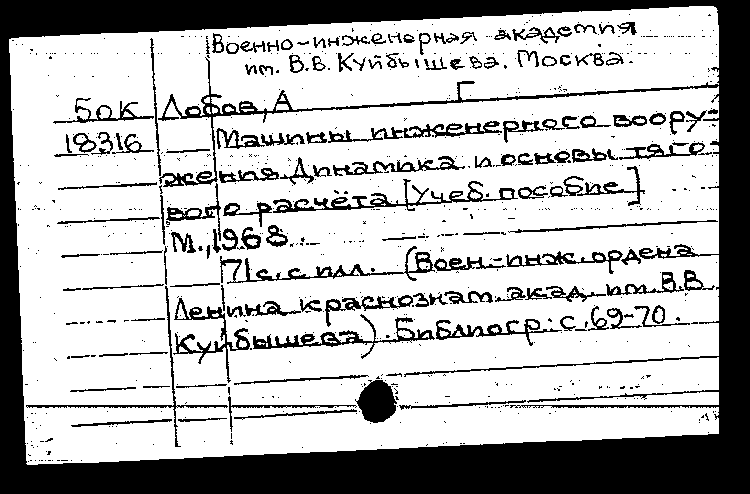 Военно-инженерная академия
им. В.В. Куйбышева. Москва.
Г
БОК Лобов, А
18316 Машины инженерного воору-
жения. Динамика и основы тяго-
вого расчёта. [Учеб. пособие]
М., 1968.
71с. с илл. (Воен.-инж. ордена
Ленина краснознам. акад. им. В.В.
Куйбышева). Библиогр.: с. 69-70.